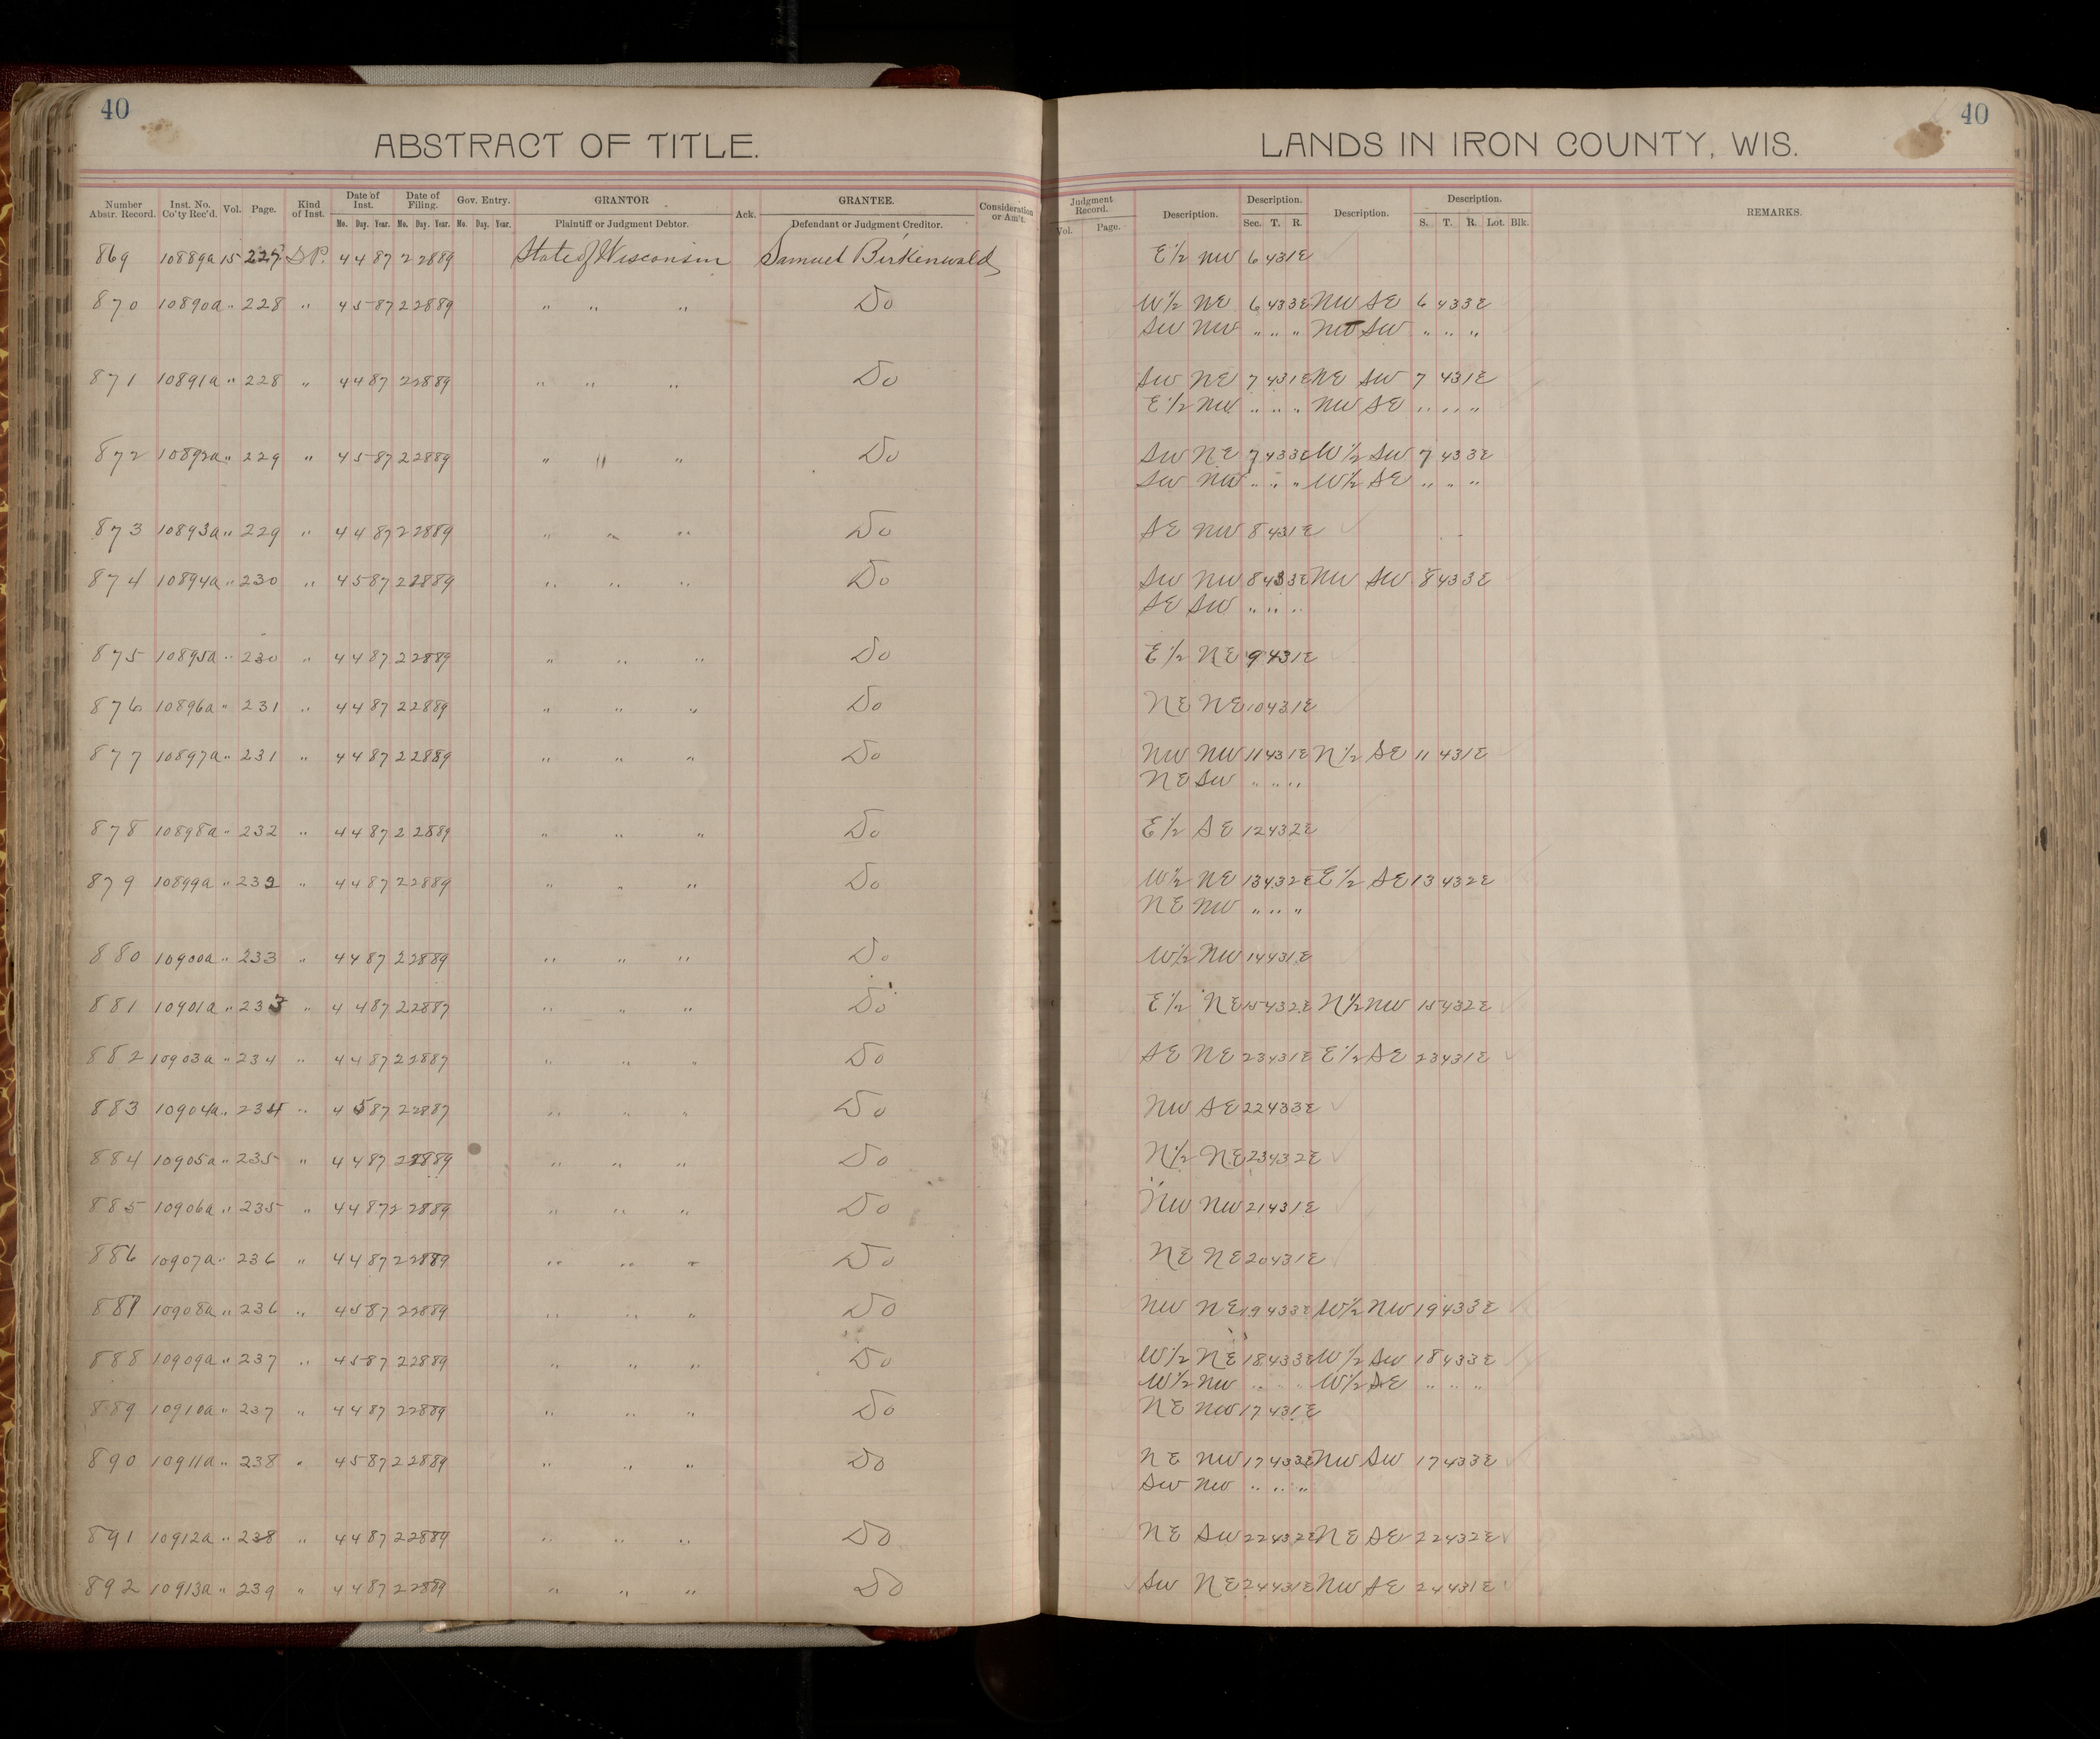 40
ABSTRACT OF TITLE.
LANDS IN IRON COUNTY, WIS.
40
Number Abstr. Record. Inst. No. Co'ty Rec'd. Vol. Page. Kind of Inst. Date of Inst. Mo. Day. Year. Date of Filing. Mo. Day. Year. Gov. Entry. Mo. Day. Year. GRANTOR Plaintiff or Judgment Debtor. Ack. GRANTEE. Defendant or Judgment Creditor. Consideration or Am't. Judgment Record. Vol. Page. Description. Description. Sec. T. R. Description. Description. S. T. R. Lot. Blk. REMARKS.
869 10889a 15 227 SP. 4 4 87 2 28 89 State of Wisconsin Samuel Birkenwald E 1/2 NW 6 43 1E
870 10890a " 228 " 4 5 87 2 28 89 " " " Do W 1/2 NE 6 43 3E NW SE 6 43 3E
SW NW " " " NW SW " " "
871 10891a " 228 " 4 4 87 2 28 89 " " " Do SW NE 7 43 1E NE SW 7 43 1E
E 1/2 NW " " " NW SE " " "
872 10892a " 229 " 4 5 87 2 28 89 " " " Do SW NE 7 43 3E W 1/2 SW 7 43 3E
SW NW " " " W 1/2 SE " " "
873 10893a " 229 " 4 4 87 2 28 89 " " " Do SE NW 8 43 1E
874 10894a " 230 " 4 5 87 2 28 89 " " " Do SW NW 8 43 3E NW SW 8 43 3E
SE SW " " "
875 10895a " 230 " 4 4 87 2 28 89 " " " Do E 1/2 NE 9 43 1E
876 10896a " 231 " 4 4 87 2 28 89 " " " Do NE NE 10 43 1E
877 10897a " 231 " 4 4 87 2 28 89 " " " Do NW NW 11 43 1E N 1/2 SE 11 43 1E
NE SW " " "
878 10898a " 232 " 4 4 87 2 28 89 " " " Do E 1/2 SE 12 43 2E
879 10899a " 232 " 4 4 87 2 28 89 " " " Do W 1/2 NE 13 43 2E E 1/2 SE 13 43 2E
NE NW " " "
880 10900a " 233 " 4 4 87 2 28 89 " " " Do W 1/2 NW 14 43 1E
881 10901a " 233 " 4 4 87 2 28 87 " " " Do E 1/2 NE 15 43 2E N 1/2 NW 15 43 2E
882 10903a " 234 " 4 4 87 2 28 87 " " " Do SE NE 23 43 1E E 1/2 SE 23 43 1E
883 10904a " 234 " 4 5 87 2 28 87 " " " Do NW SE 22 43 3E
884 10905a " 235 " 4 4 87 2 28 89 " " " Do N 1/2 NE 23 43 2E
885 10906a " 235 " 4 4 87 2 28 89 " " " Do NW NW 21 43 1E
886 10907a " 236 " 4 4 87 2 28 89 " " " Do NE NE 20 43 1E
887 10908a " 236 " 4 5 87 2 28 89 " " " Do NW NE 19 43 3E W 1/2 NW 19 43 3E
888 10909a " 237 " 4 5 87 2 28 89 " " " Do W 1/2 NE 18 43 3E W 1/2 SW 18 43 3E
W 1/2 NW " " " W 1/2 SE " " "
889 10910a " 237 " 4 4 87 2 28 89 " " " Do NE NW 17 43 1E
890 10911a " 238 " 4 5 87 2 28 89 " " " Do NE NW 17 43 3E NW SW 17 43 3E
SW NW " " "
891 10912a " 238 " 4 4 87 2 28 89 " " " Do NE SW 22 43 2E NE SE 22 43 2E
892 10913a " 239 " 4 4 87 2 28 89 " " " Do SW NE 24 43 1E NW SE 24 43 1E